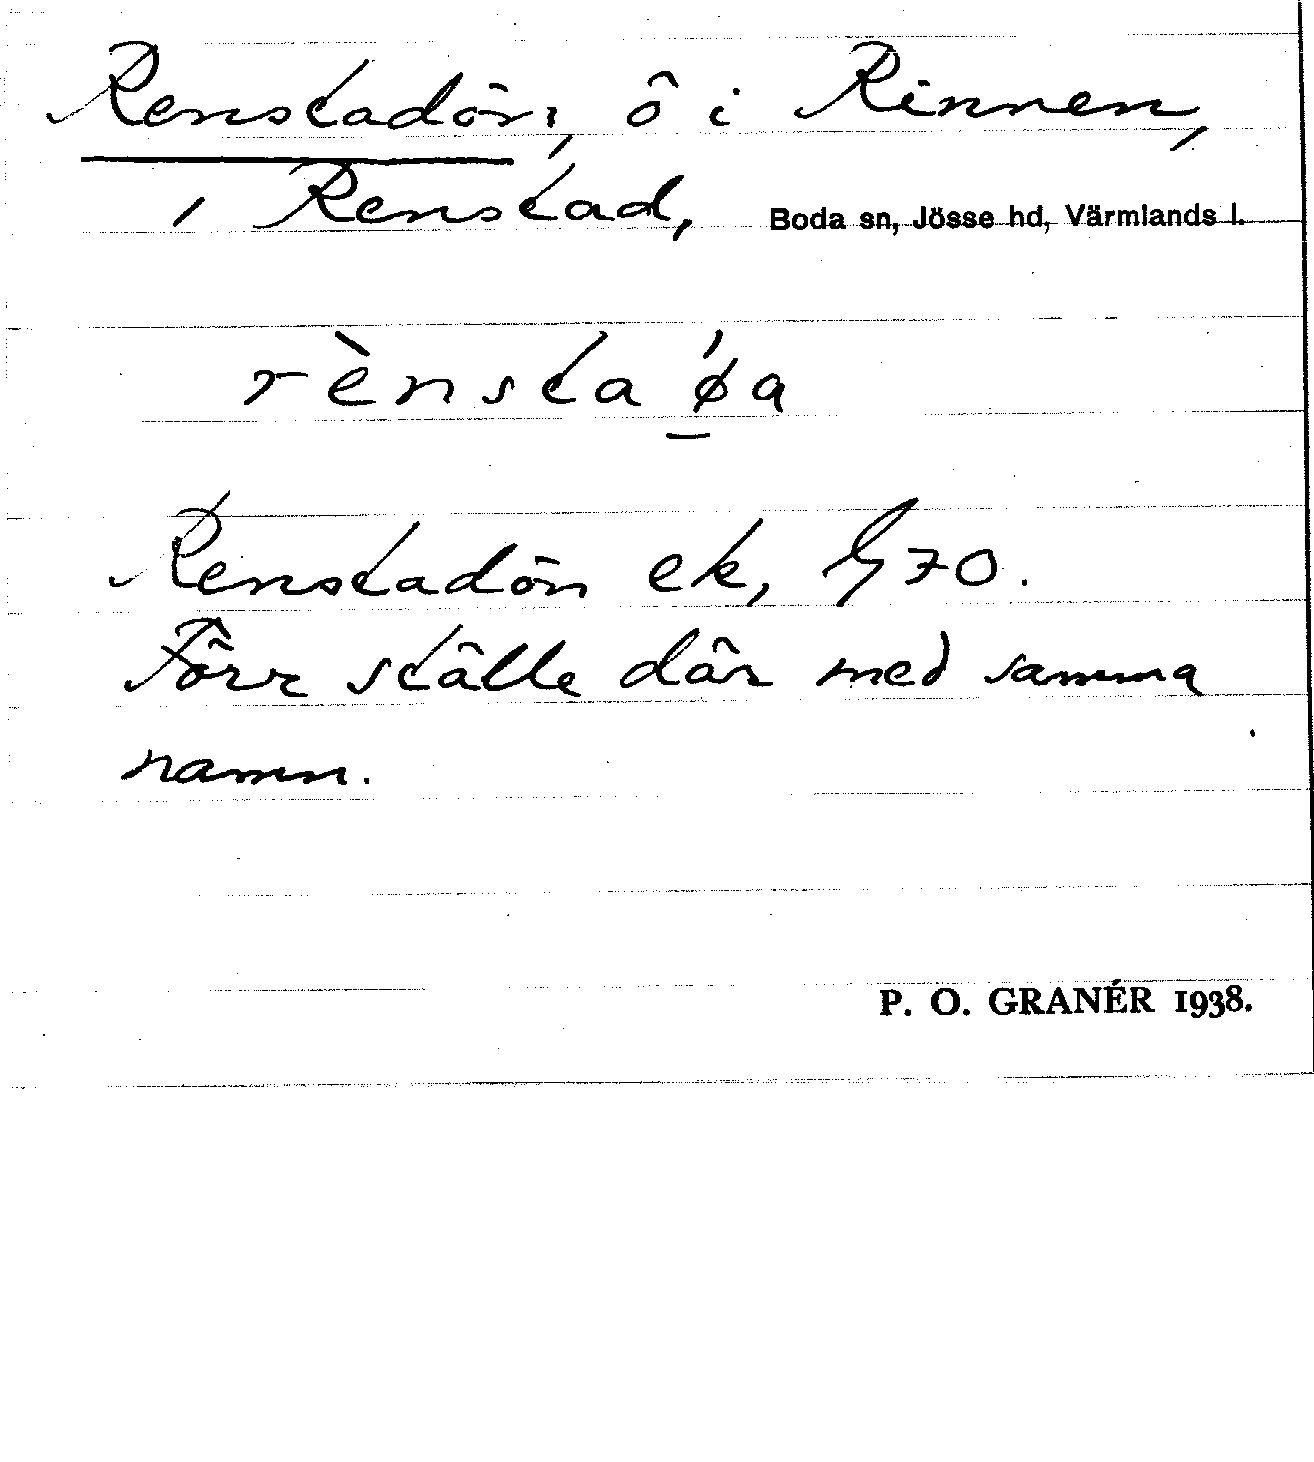 Renstadön, ö i Rinnen,
i Renstad, Boda sn, Jösse hd, Värmlands l.
rènsta ǿa
Renstadön ek, G 70.
Förr ställe där med samma
namn.
P. O. GRANÉR 1938.